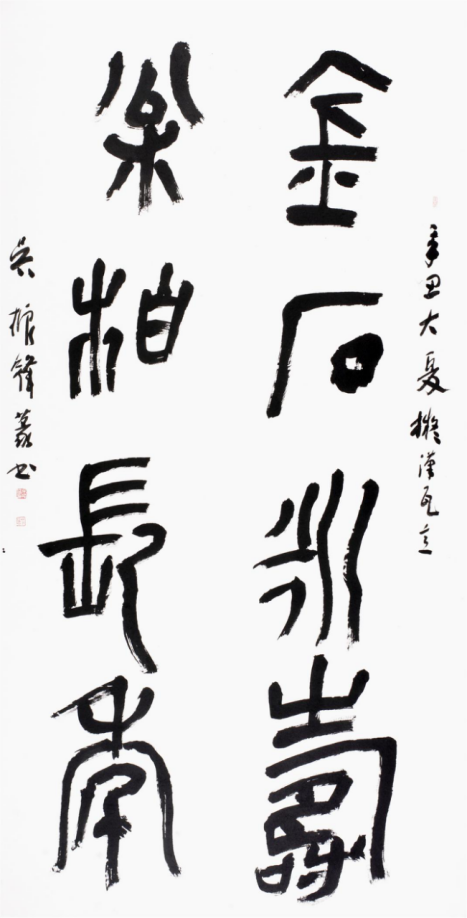 辛丑大夏擬漢瓦意
金石永壽
松柏長年
吳振鋒篆书